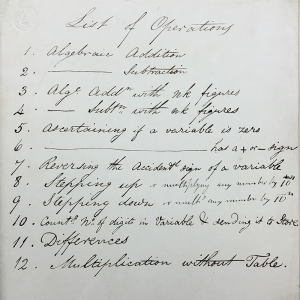 List of Operations
1. Algebraic Addition
2. ——— Subtraction
3. Algc Addn with nk figures
4. — Subtn with nk figures
5. Ascertaining if a variable is zero
6. ——————— has a + or − sign
7. Reversing the Accidentl sign of a variable
8. Stepping up or multiplying any number by 10
9. Stepping down or any number by 10
10. Countg No. of digits in Variable & sending it to Store
11. Differences
12. Multiplication without Table.